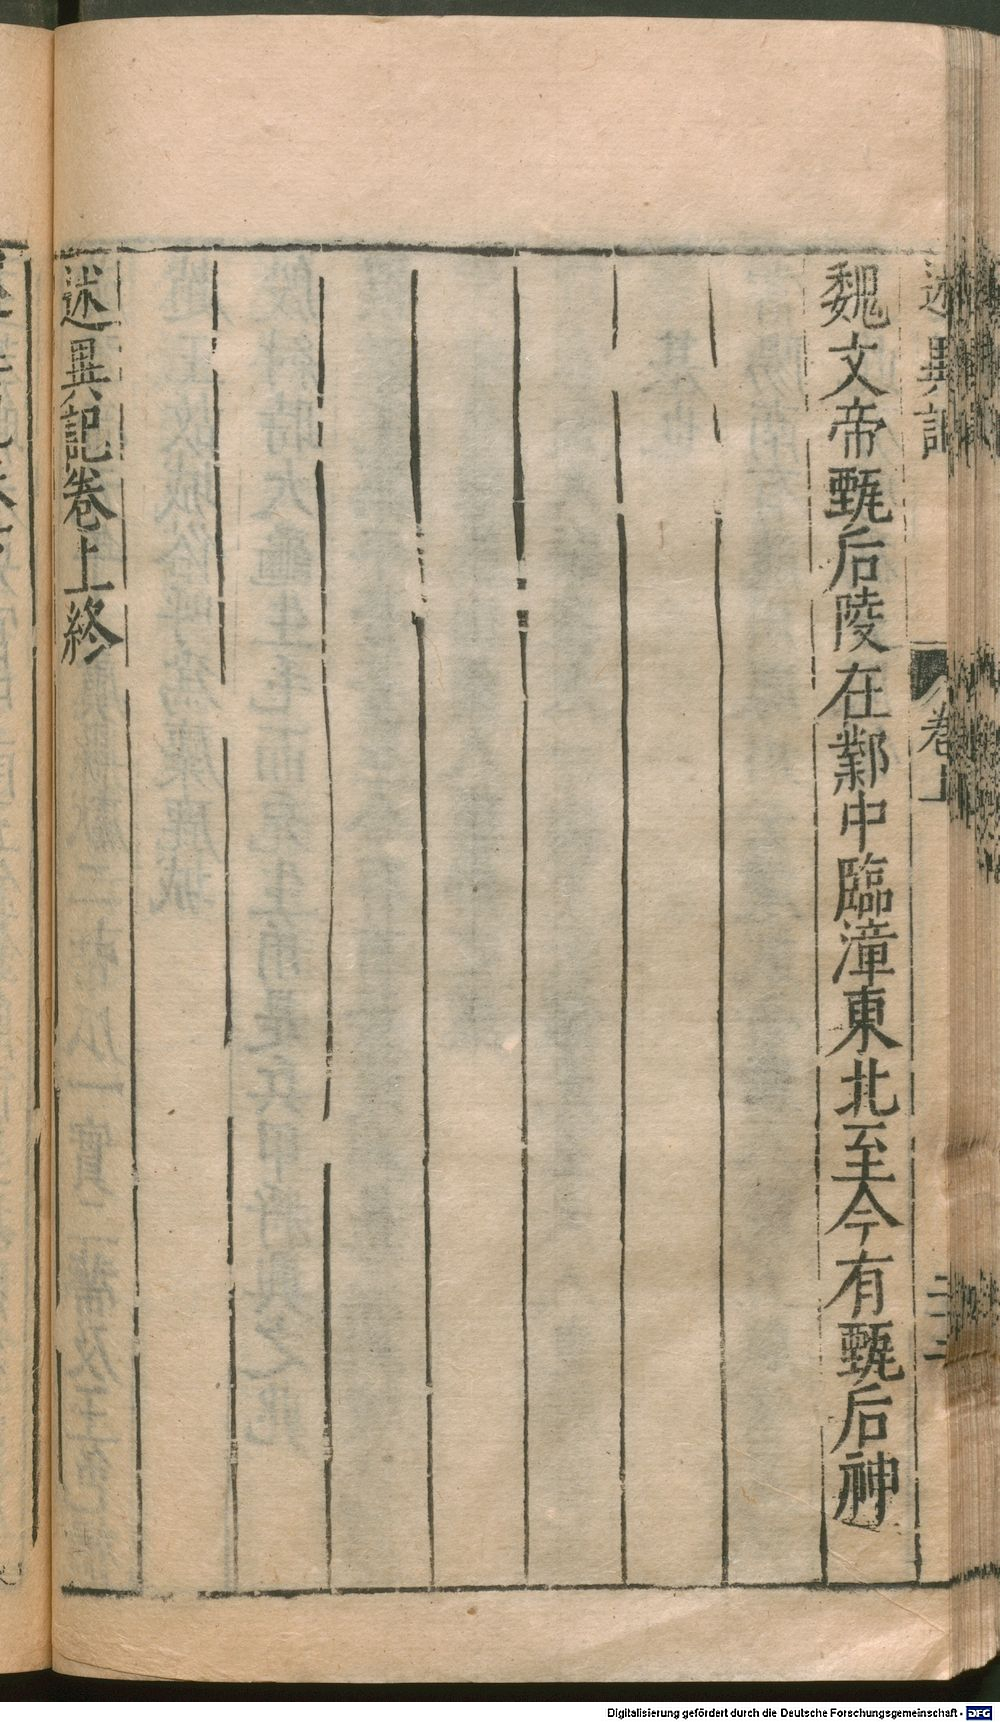 述異記
卷上
二十二
魏文帝甄后陵在鄴中臨漳東北至今有甄后神
述異記卷上終
Digitalisierung gefördert durch die Deutsche Forschungsgemeinschaft - DFG